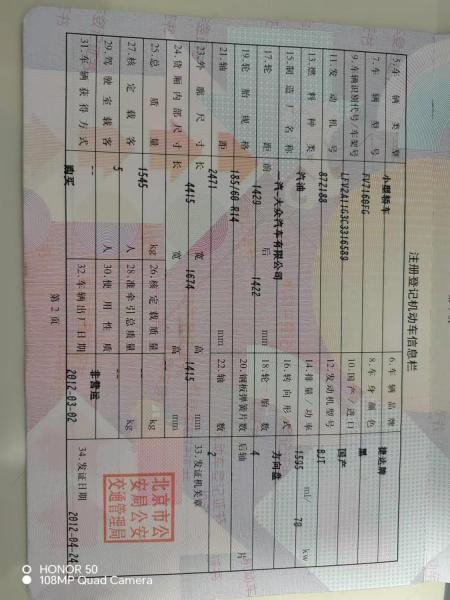 注册登记机动车信息栏
5.车辆类型 小型轿车 6.车辆品牌 捷达牌
7.车辆型号 FV7160FG 8.车身颜色 黑
9.车辆识别代号/车架号 LFV2A11G3C3316589 10.国产/进口 国产
11.发动机号 872188 12.发动机型号 BJT
13.燃料种类 汽油 14.排量/功率 1595 ml/ 70 kw
15.制造厂名称 一汽-大众汽车有限公司 16.转向形式 方向盘
17.轮距 前 1429 后 1422 mm 18.轮胎数 4
19.轮胎规格 185/60 R14 20.钢板弹簧片数 后轴 片
21.轴距 2471 mm 22.轴数 2
23.外廓尺寸 长 4415 宽 1674 高 1415 mm 33.发证机关章
24.货厢内部尺寸 长 宽 高 mm
25.总质量 1545 kg 26.核定载质量 -- kg
27.核定载客 5 人 28.准牵引总质量 -- kg
29.驾驶室载客 -- 人 30.使用性质 非营运
31.车辆获得方式 购买 32.车辆出厂日期 2012-03-02 34.发证日期 2012-04-24
北京市公
安局公安
交通管理局
第2页
HONOR 50
108MP Quad Camera